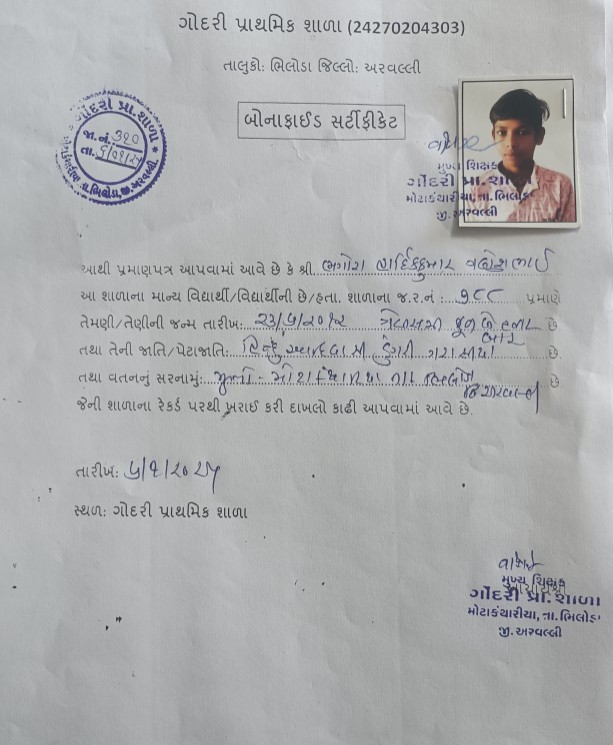 ગોદરી પ્રાથમિક શાળા (24270204303)
તાલુકો: ભિલોડા જિલ્લો: અરવલ્લી
બોનાફાઈડ સર્ટીફીકેટ
ગોદરી પ્રા. શાળા
જા. નં. 320
તા.
તા. ભિલોડા, જી. અરવલ્લી.
મુખ્ય શિક્ષક
ગોદરી પ્રા. શા
મોટાકંથારીયા, તા. ભિલોડ
જી. અરવલ્લી
આથી પ્રમાણપત્ર આપવામાં આવે છે કે શ્રી. ભગોરા હાર્દિકકુમાર
આ શાળાના માન્ય વિદ્યાર્થી/વિદ્યાર્થીની છે/હતા. શાળાના જ.ર.નં : ૭૮૮ પ્રમાણે
તેમણી/તેણીની જન્મ તારીખ: ૨૩/૫/૨૦૧૨ ત્રેવીસમી છે
બાર
તથા તેની જાતિ/પેટાજાતિ: હિન્દુ ડુંગરી ગરાસીયા છે.
તથા વતનનું સરનામું: મોટાકંથારીયા તા. ભિલોડા છે
જિ. અરવલ્લી
જેની શાળાના રેકર્ડ પરથી ખરાઈ કરી દાખલો કાઢી આપવામાં આવે છે.
તારીખ: ૫/૧/૨૦૨૫
સ્થળ: ગોદરી પ્રાથમિક શાળા
મુખ્ય શિક્ષક
ગોદરી પ્રા. શાળા
મોટાકંથારીયા, તા. ભિલોડા
જી. અરવલ્લી